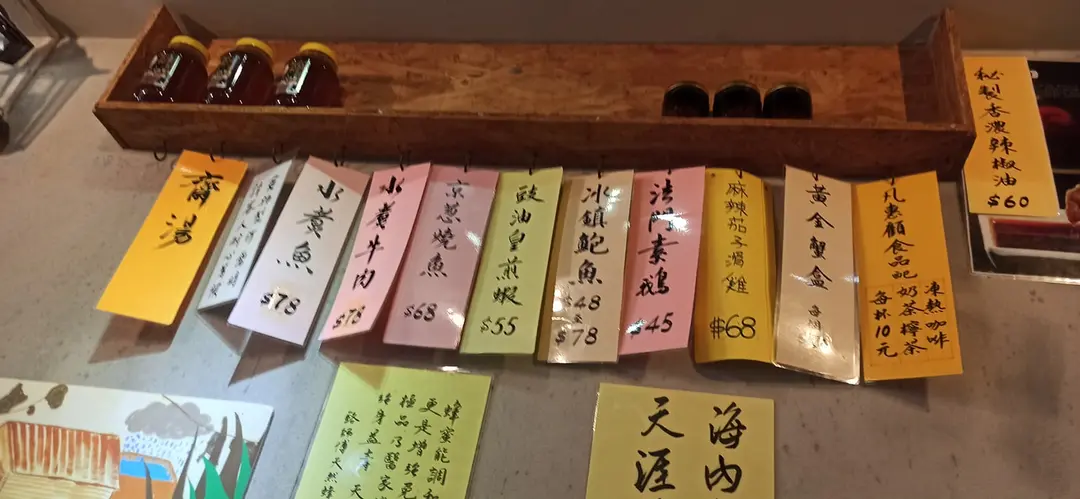 齋湯
水煮魚
$78
水煮牛肉
$78
京蔥燒魚
$68
豉油皇煎蝦
$55
冰鎮鮑魚
$48
$78
法門素鵝
$45
麻辣茄子滑雞
$68
黃金蟹盒
凡惠顧食品配
凍熱咖啡
奶茶檸茶
每杯10元
秘製香濃辣椒油
$60
蜂蜜能調和
更是增強免
極品乃醫家
海內
天涯